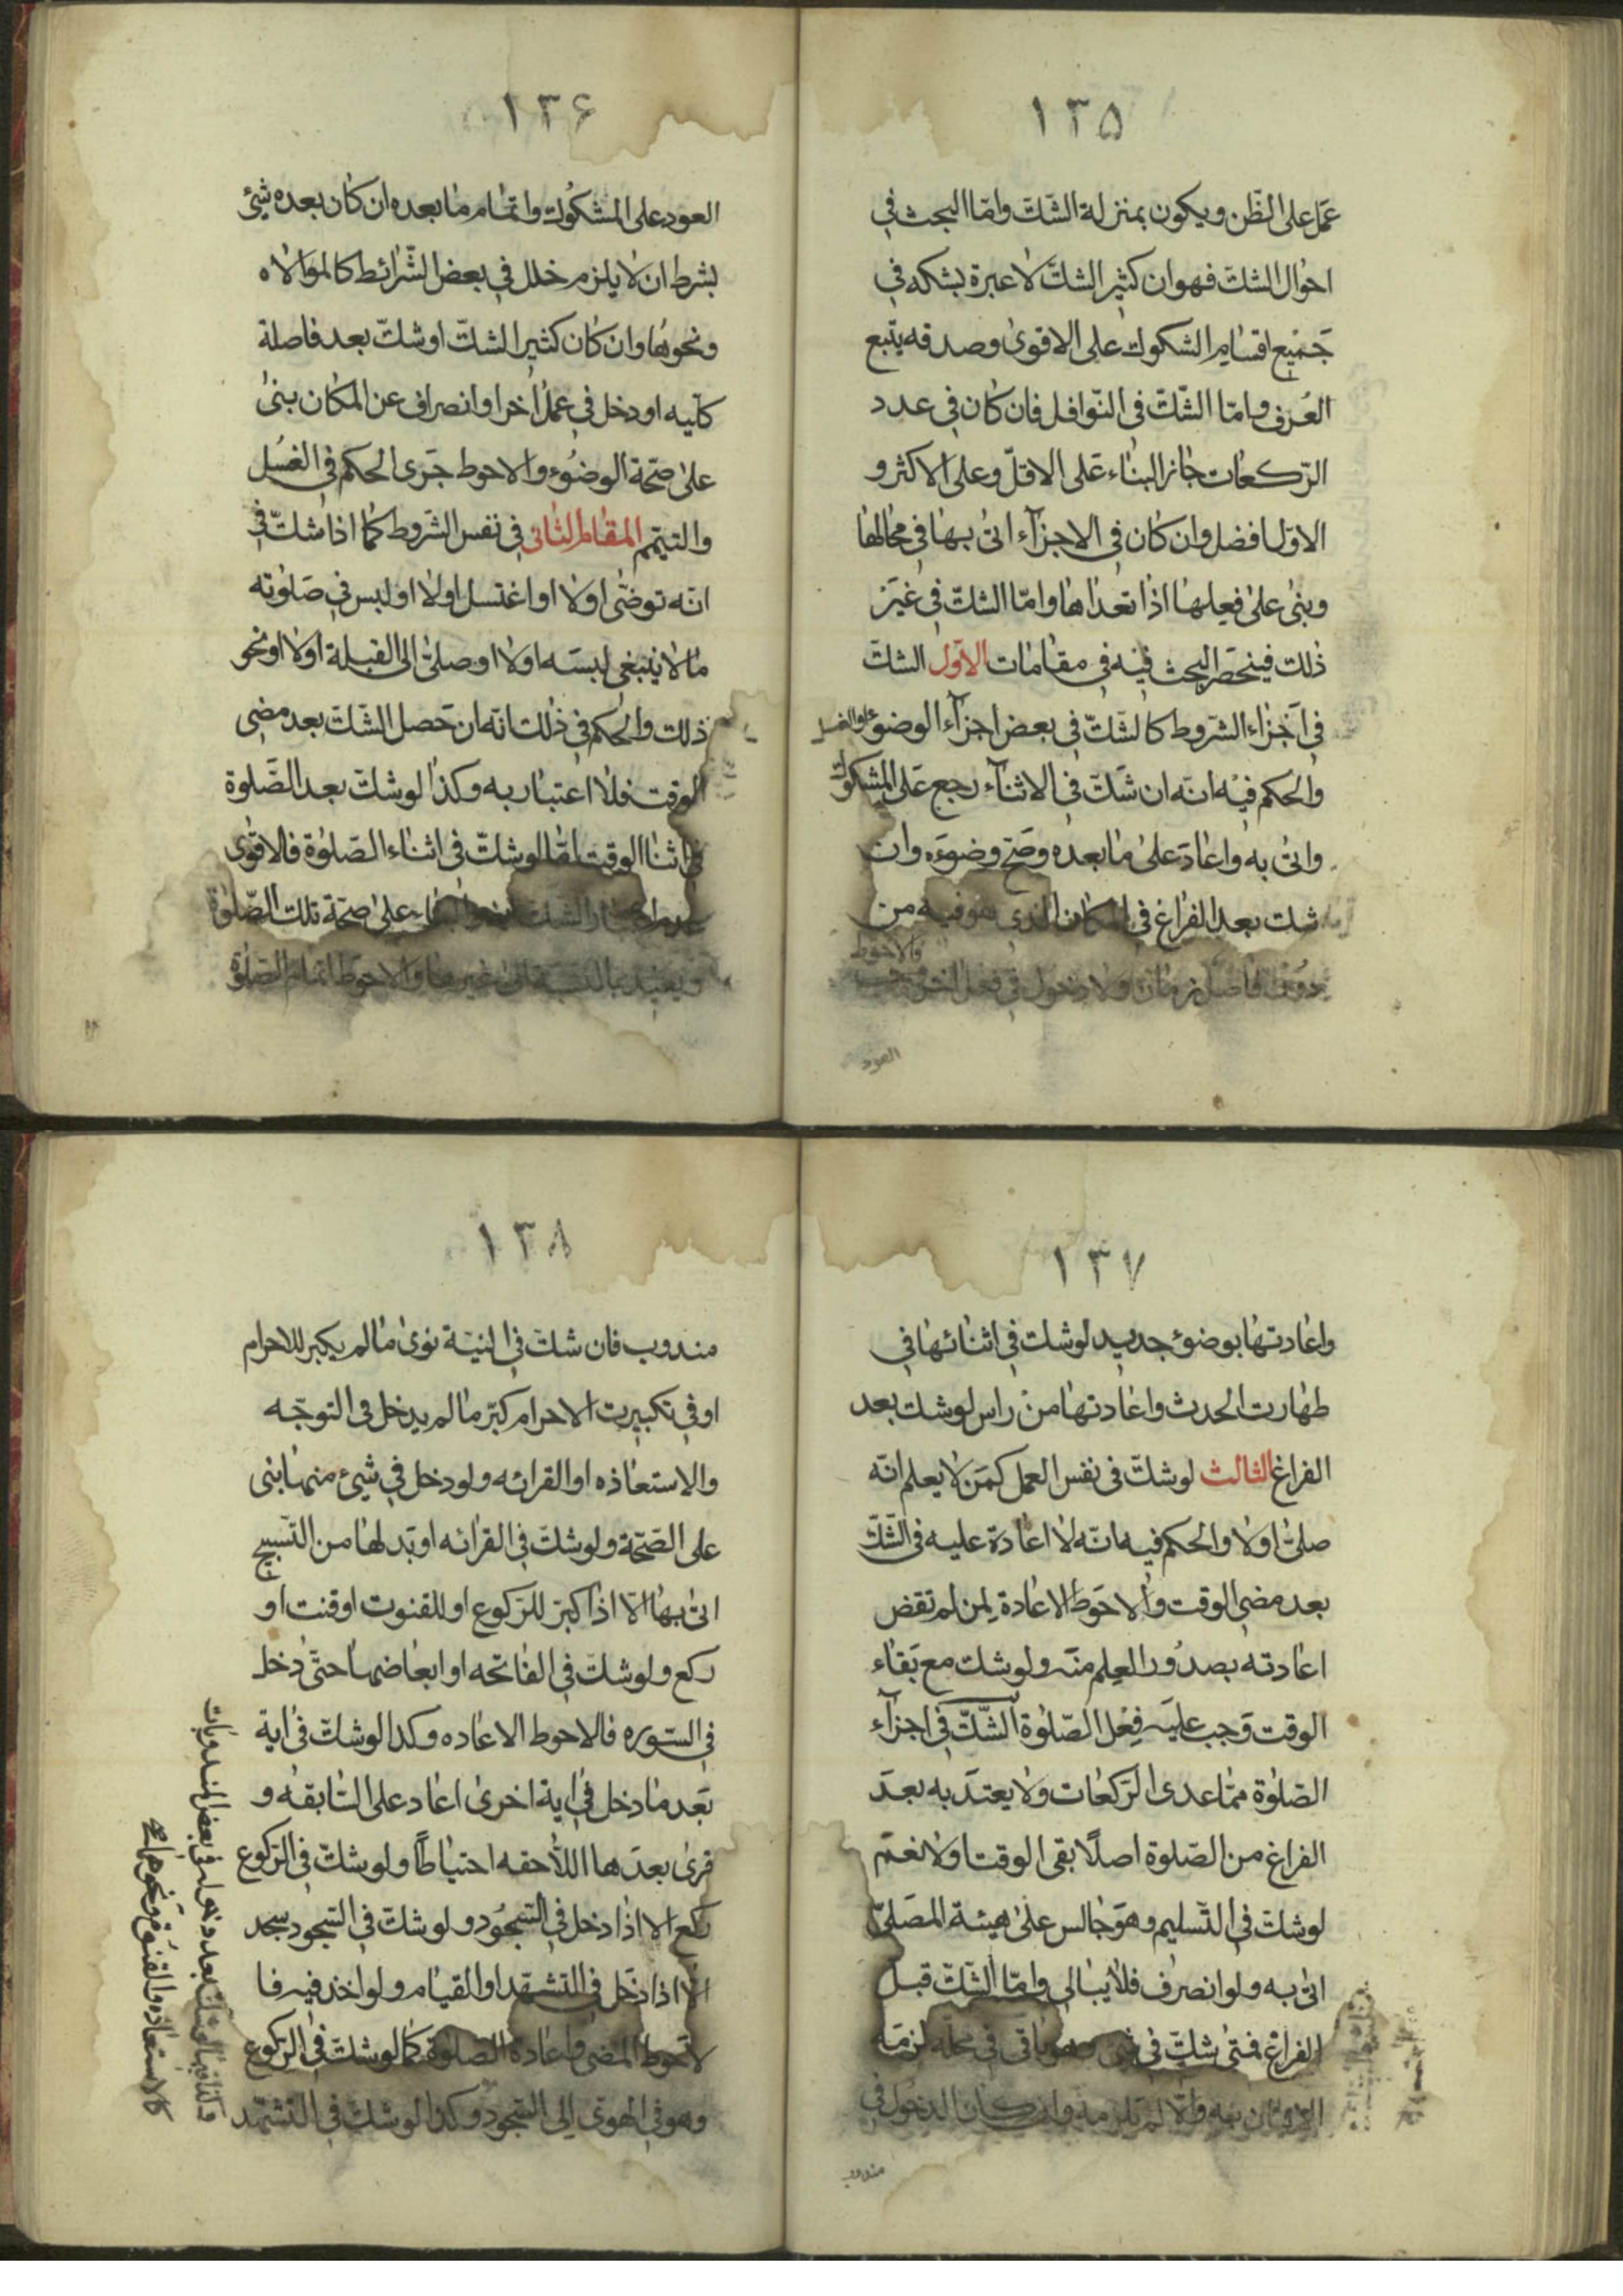 ١٣۵
عمل على الظّن ويكون بمنزلة الشّك وامّا البحث في
احوال الشك فهو ان كثير الشكّ لا عبرة بشكه في
جَميع اقسام الشكوك على الاقوى وصدقه يتّبع
العُرف وامّا الشّك فى النّوافل فان كان فى عدد
الرّكعات جاز البناء عَلى الاقلّ وعلى الاكثر و
الاوّل افضل وان كان فى الاجزآء اتى بها في محالها
وبنى على فعلها اذا تعداها وامّا الشكّ في غَير
ذلك فينحصر البحث فيه في مقامات الاوّل الشكّ
في اجَزاء الشروط كالشكّ في بعض اجزآء الوضوء والغسل
والحكم فيه انّه ان شَكّ في الاثنآء رجع عَلى المشكوك
واتى به واعادَ على ما بعده وصَحّ وضوءه وان
شك بعد الفراغ في المكان الذى هو فيه من
دون فاصل زمان ولا دخول في فعل اخر
والاحوط
العود
١٣۶
العود على المشكوك واتمام ما بعده ان كان بعده شئ
بشرط ان لا يلزم خلل في بعض الشّرائط كالموالاه
ونحوها وان كان كثير الشكّ او شكّ بعد فاصلة
كلّيه او دخل في عمل اخر او انصراف عن المكان بنى
على صحّة الوضوء والاحوط جَرى الحكم في الغسُل
والتيمّم المقام الثانى في نفس الشّروط كما اذا شكّ في
انّه توضّى اولا او اغتسل اولا او لبس في صَلوته
ما لا ينبغي لبسَه اولا او صلّى الى القبلة اولا او نحو
ذلك والحكم في ذلك انّه ان حَصل الشّك بعد مضي
الوقت فلا اعتبار به وكذا لو شكّ بعد الصَّلوة
في اثنا الوقت امّا لو شكّ فى اثناء الصّلوة فالاقوى
على صحّة تلك الصّلوة
ويعيد بالنسبة الى غيرها والاحوط اتمام الصلوة
١٣٧
واعادتها بوضوء جديد لو شك في اثنائها في
طهارت الحدث واعادتها من راس لو شك بعد
الفراغ الثالث لو شكّ فى نفس العمل كمَن لا يعلم انّه
صلّى اولا والحكم فيه انّه لا اعادة عليه فى الشّكّ
بعد مضي الوقت والاحَوط الاعادة لمِن لم تقض
اعادته بصدُور العِلم منه ولو شك مع بَقاء
الوقت وَجب عليه فِعْل الصّلوة الشّكّ في اجزآء
الصّلوة ممّا عدى الرّكعات ولا يعتدّ به بعدَ
الفراغ من الصّلوة اصلاً بقى الوقت اولا نعم
لو شكّ في التّسليم وهوَ جالس على هيئة المصَلىّ
اتى به ولو انصرف فلا يبالى وامّا الشّكّ قبل
الفراغ فمتى شكّ في شئ وهو باقى في محلّه لزمَه
الاتيان به والّا لم يلزمه وان كان الدخول في
مندوب
١٣٨
مندوب فان شك في النيّة نوى ما لم يكبر للاحرام
او في تكبيرت الاحرام كبّر ما لم يدخل فى التوجّه
والاستعاذه او القرائه ولو دخل في شيئ منها بنى
على الصّحّة ولو شكّ في القرائه او بَدلها من التّسبيح
اتى بها الّا اذا كبرّ للرّكوع او للقنوت او قنت او
ركع ولو شكّ في الفاتحه او ابعاضها حتّى دخل
في السّوره فالاحوط الاعاده وكذا لو شكّ في اية
بعد ما دخل في اية اخرى اعاد على السّابقه و
قرئ بعدَها اللاحقه احتياطاً ولو شكّ في الرّكوع
ركع الا اذا دخل في السّجُود ولو شكّ في السّجود سجد
الّا اذا دَخل فى التشهّد او القيام ولو اخذ فيه فا
لاحوط المضي واعادة الصلوة كما لو شكّ في الركوع
وهو في الهوى الى السّجود وكذا لو شك في التشهّد
بعد دخوله في بعض المندوبات
كالاستعاذه والقنوت ونحوها